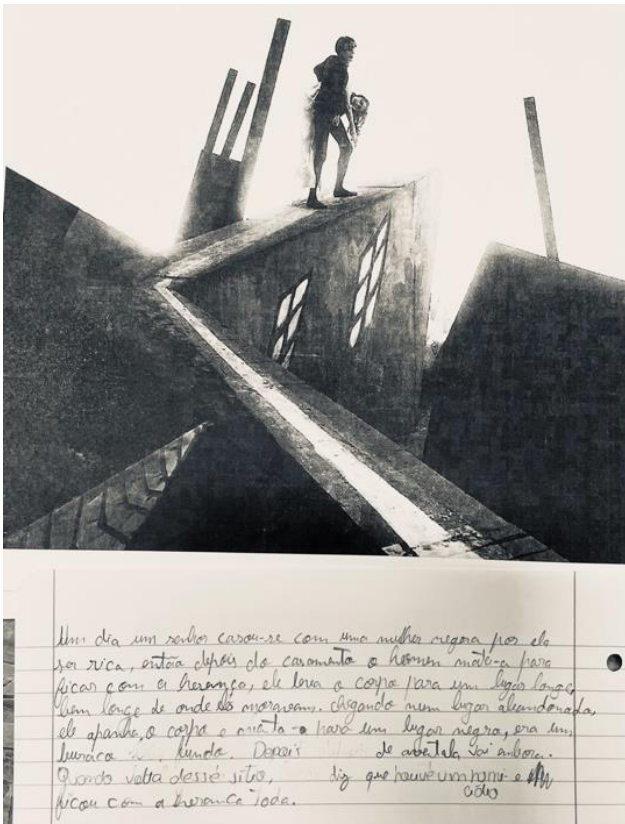 Um dia um senhor casou-se com uma mulher por ela
ser rica, então depois do casamento o homem mata-a para
ficar com a herança, ele leva o corpo para um lugar longe,
bem longe de onde moravam. chegando num lugar abandonado,
ele apanha o corpo e para um lugar negro, era um
buraco fundo. Depois de vai embora.
Quando volta desse sitio, diz que houve um e
ficou com a herança toda.